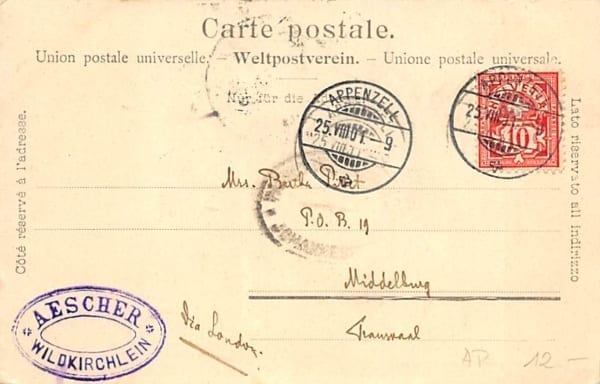 Carte postale.
Union postale universelle. – Weltpostverein. – Unione postale universale.
Nur für die
APPENZELL
25.VIII.01. 9
HELVETIA
10
25.VIII
Côté réservé à l'adresse.
Lato riservato all indirizzo
Mrs.
P.O.B. 19
JOHANNES
Middelburg
Transvaal
Via London.
AESCHER
WILDKIRCHLEIN
AP 12.–